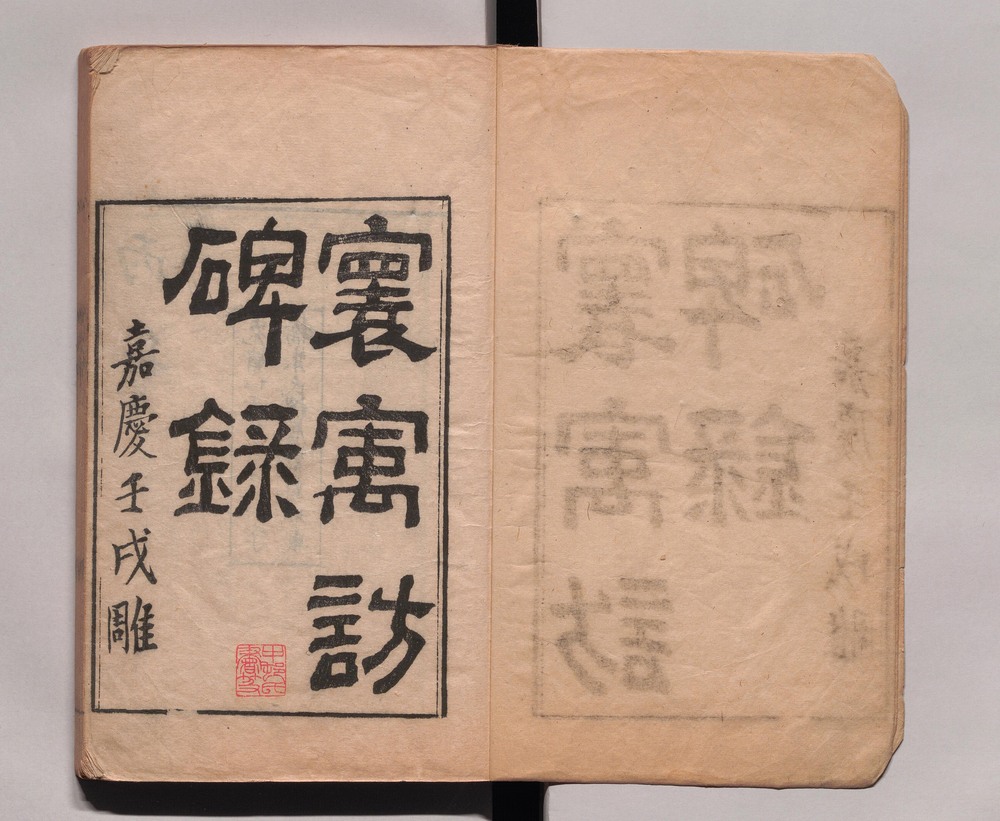 寰㝢訪
碑錄
嘉慶壬戌雕